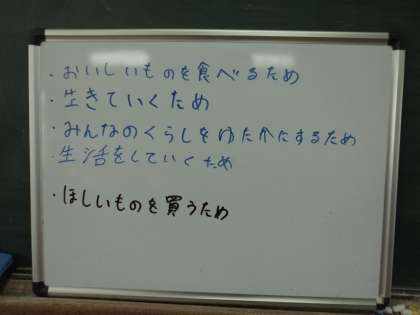 ・おいしいものを食べるため
・生きていくため
・みんなのくらしをゆたかにするため
・生活をしていくため
・ほしいものを買うため